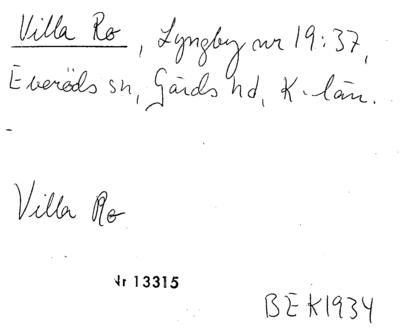 Villa Ro, Lyngby nr 19:37,
Everöds sn, Gärds hd, K-län.
Villa Ro
Nr 13315
BEK1934